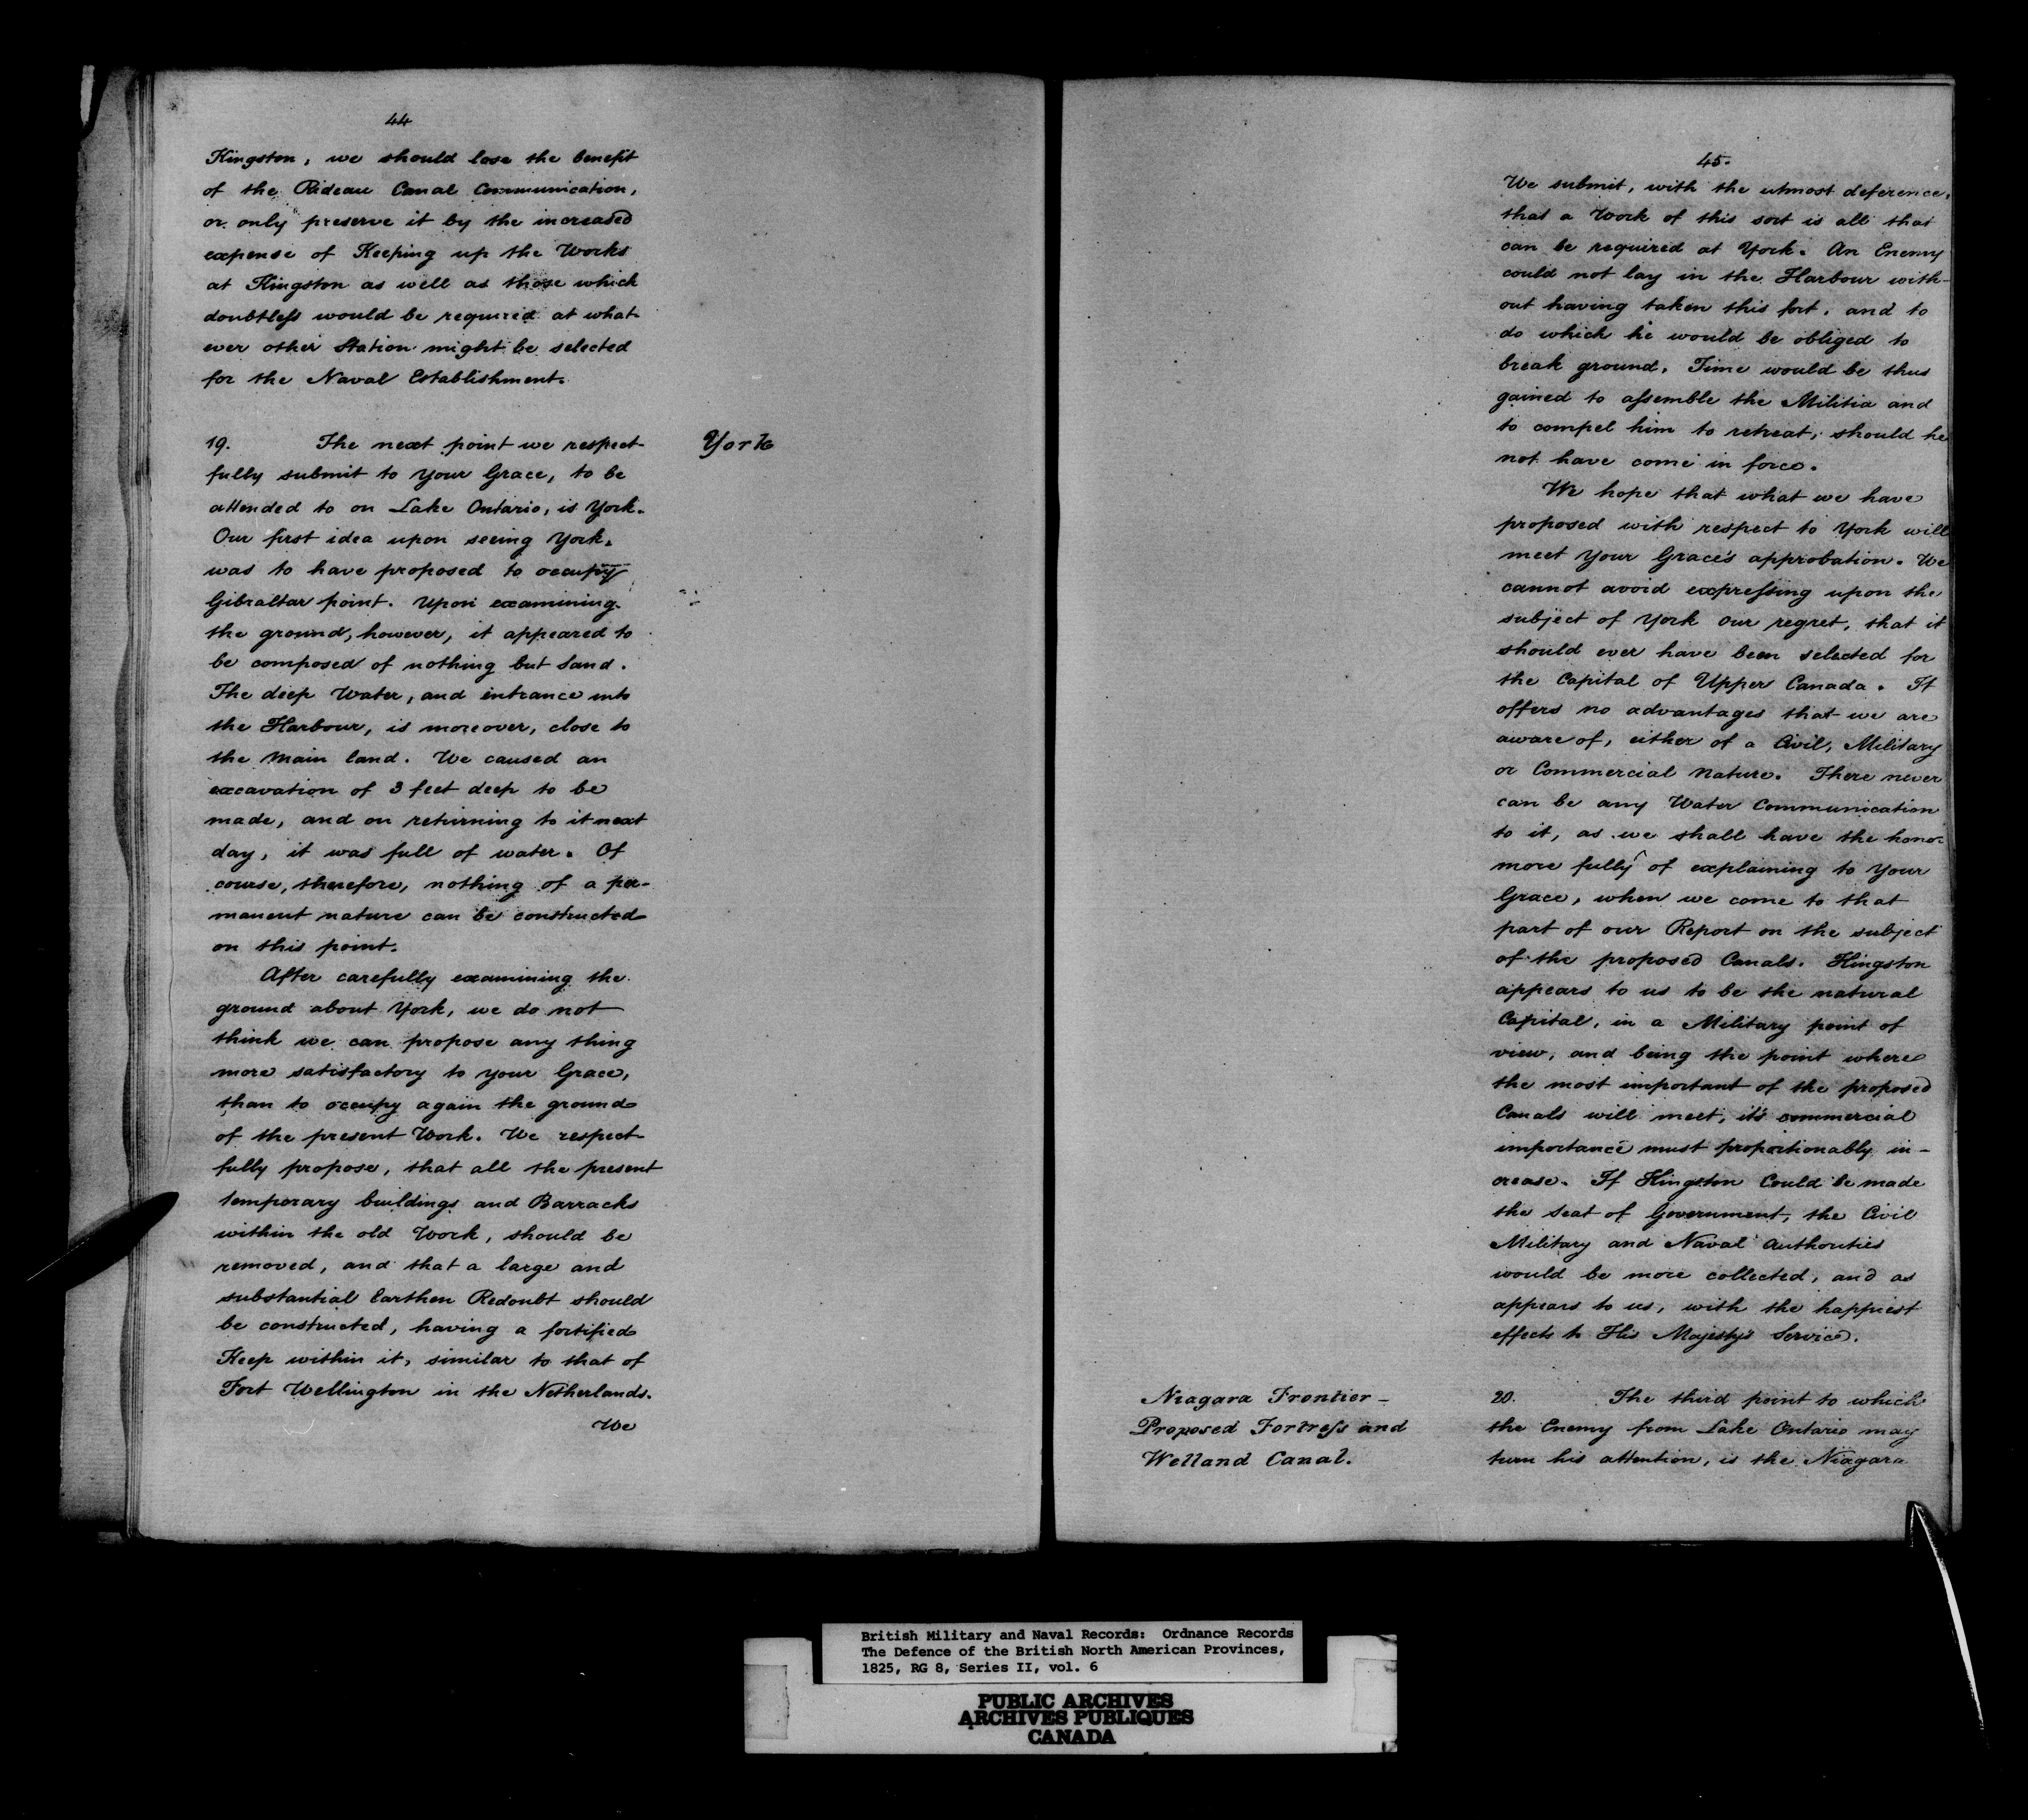 44
Kingston, we should lose the benefit
of the Rideau Canal Communication,
or only preserve it by the increased
expense of Keeping up the Works
at Kingston as well as those which
doubtless would be required at what-
ever other Station might be selected
for the Naval Establishment.
19. The next point we respect-
fully submit to Your Grace, to be
attended to on Lake Ontario, is York.
Our first idea upon seeing York.
was to have proposed to occupy
Gibraltar point. Upon examining
the ground, however, it appeared to
be composed of nothing but Sand.
The deep Water, and entrance into
the Harbour, is moreover, close to
the Main land. We caused an
excavation of 3 feet deep to be
made, and on returning to it next
day, it was full of water. Of
course, therefore, nothing of a per-
manent nature can be constructed
on this point.
After carefully examining the
ground about York, we do not
think we can propose any thing
more satisfactory to your Grace,
than to occupy again the ground
of the present Work. We respect-
fully propose, that all the present
temporary buildings and Barracks
within the old Work, should be
removed, and that a large and
substantial Earthen Redoubt should
be constructed, having a fortified
Keep within it, similar to that of
Fort Wellington in the Netherlands.
We
York
45.
We submit, with the utmost deference,
that a Work of this sort is all that
can be required at York. An Enemy
could not lay in the Harbour with-
out having taken this fort, and to
do which he would be obliged to
break ground. Time would be thus
gained to assemble the Militia and
to compel him to retreat, should he
not have come in force.
We hope that what we have
proposed with respect to York will
meet Your Grace's approbation. We
cannot avoid expressing upon the
subject of York our regret, that it
should ever have been selected for
the Capital of Upper Canada. It
offers no advantages that we are
aware of, either of a Civil, Military
or Commercial Nature. There never
can be any Water Communication
to it, as we shall have the honor
more fully of explaining to Your
Grace, when we come to that
part of our Report on the subject
of the proposed Canals. Kingston
appears to us to be the natural
Capital, in a Military point of
view, and being the point where
the most important of the proposed
Canals will meet, it's commercial
importance must proportionably in-
crease. If Kingston Could be made
the Seat of Government, the Civil
Military and Naval Authorities
would be more collected, and as
appears to us, with the happiest
effects to His Majesty's Service.
Niagara Frontier -
Proposed Fortress and
Welland Canal.
20. The third point to which
the Enemy from Lake Ontario may
turn his attention, is the Niagara
British Military and Naval Records: Ordnance Records
The Defence of the British North American Provinces,
1825, RG 8, Series II, vol. 6
PUBLIC ARCHIVES
ARCHIVES PUBLIQUES
CANADA